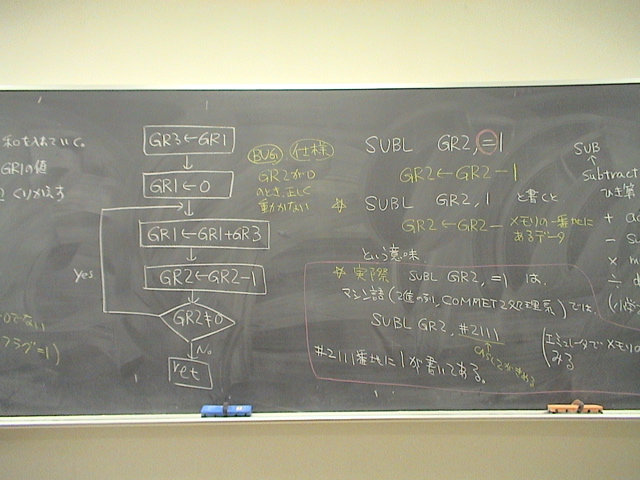 和を入れていく。
GR1の値
くりかえす
でない
フラグ=1)
GR3←GR1
GR1←0
GR1←GR1+GR3
GR2←GR2-1
GR2≠0
yes
No
ret
BUG, 仕様
GR2が0
のとき正しく
動かない
SUBL GR2, =1
GR2←GR2-1
SUBL GR2, 1 と書くと
GR2←GR2- メモリの一番地に
あるデータ
という意味.
実際 SUBL GR2, =1 は、
マシン語(2進の列, COMMET2処理系)では、
SUBL GR2, #2111
#2111番地に1が書いてある。
(エミュレータでメモリの
みる
SUB
↑
subtract
ひき算
+ a
- S
× m
÷ d